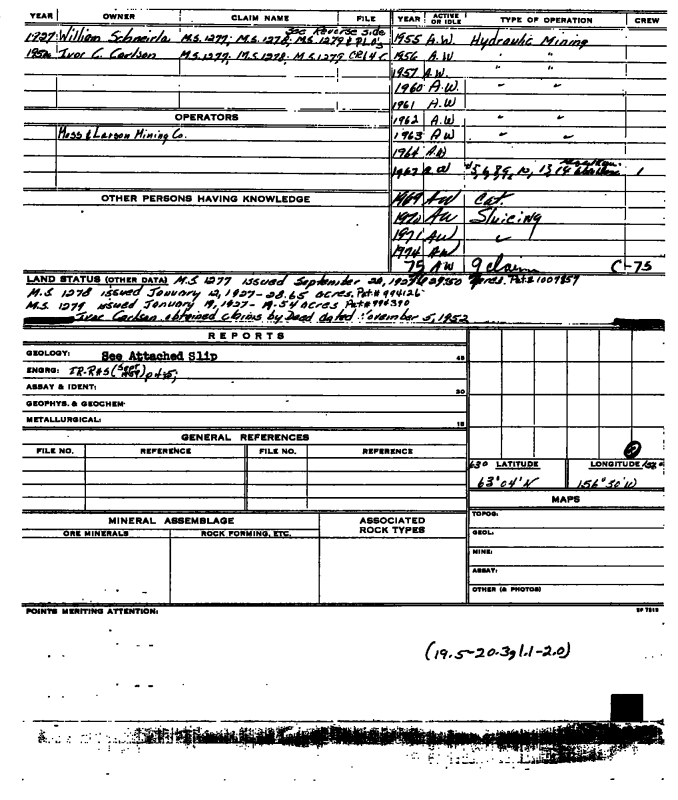 YEAR OWNER CLAIM NAME FILE YEAR ACTIVE OR IDLE TYPE OF OPERATION CREW
See Reverse side
1927 William Schneirla M.S. 1277; M.S. 1278; M.S. 1279 & PLO's 1955 A.W. Hydraulic Mining
1952 Ivor C. Carlson M.S. 1277; M.S. 1278; M.S. 1279 1956 A.W " "
1957 A.W. " "
1960 A.W. " "
1961 A.W
OPERATORS 1962 A.W " "
Moss & Larson Mining Co. 1963 AW " "
1964 A.W
1967 A.W 1
OTHER PERSONS HAVING KNOWLEDGE 1969 AW Cat.
1970 AW Sluicing
1971 AW "
1974 AW
75 AW 9 claim C-75
LAND STATUS (OTHER DATA) M.S 1277 issued September 28, 1927 acres. Pat.# 1007857
M.S. 1278 issued January 12, 1927 - 28.65 acres. Pat.# 994126
M.S. 1279 issued January 19, 1927 - 19.54 acres Pat.# 994390
Ivor Carlson obtained claims by Deed dated November 5, 1952
REPORTS
GEOLOGY: See Attached Slip 45
ENGRG:
ASSAY & IDENT: 30
GEOPHYS. & GEOCHEM:
METALLURGICAL: 15
GENERAL REFERENCES
FILE NO. REFERENCE FILE NO. REFERENCE
63° LATITUDE LONGITUDE
63°04'N 156°30'W
MAPS
MINERAL ASSEMBLAGE ASSOCIATED ROCK TYPES TOPOG:
ORE MINERALS ROCK FORMING, ETC. GEOL:
MINE:
ASSAY:
OTHER (& PHOTOS)
POINTS MERITING ATTENTION:
(19.5-20.3, 1.1-2.0)